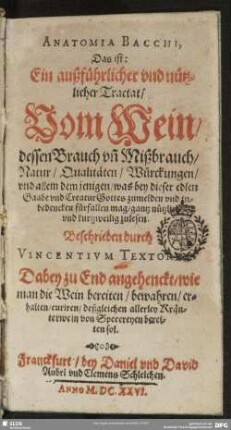 ANATOMIA BACCHI,
Das ist:
Ein außführlicher vnd nütz-
licher Tractat/
Vom Wein/
dessen Brauch vñ Mißbrauch/
Natur/ Qualitäten/ Würckungen/
vnd allem dem jenigen/ was bey dieser edlen
Gaabe vnd Creatur Gottes zumelden vnd zu-
bedencken fürfallen mag/ gantz nützlich
vnd kurtzweilig zulesen.
Beschrieben durch
VINCENTIVM TEXTOR
Dabey zu End angehenckt/ wie
man die Wein bereiten/ bewahren/ er-
halten/ curiren/ deßgleichen allerley Kräu-
terwein von Specereyen berei-
ten sol.
Franckfurt/ bey Daniel vnd David
Aubri vnd Clemens Schleichen.
ANNO M. DC. XXVI.